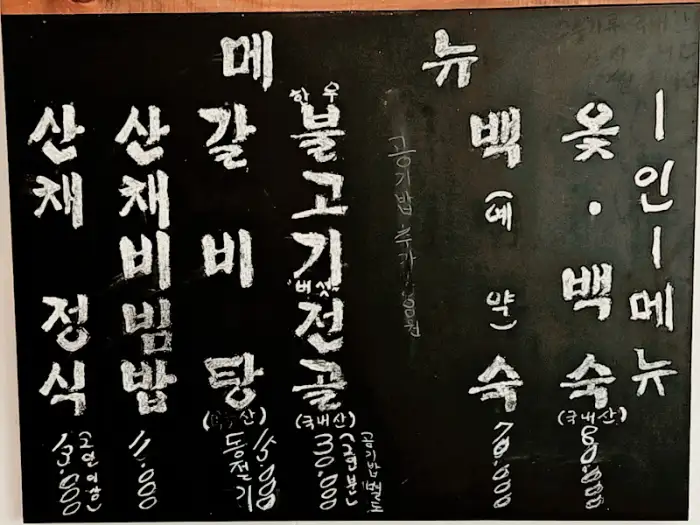 메뉴
산채 정식
(2인이상)
13.000
산채비빔밥
11.000
갈비탕
산)
15.000
등전기
한우
불고기
버섯
전골
(국내산)
30.000
(2인분)
공기밥 추가
백숙
(예약)
70.000
옻·백숙
(국내산)
80.000
ㅣ인ㅣ메뉴